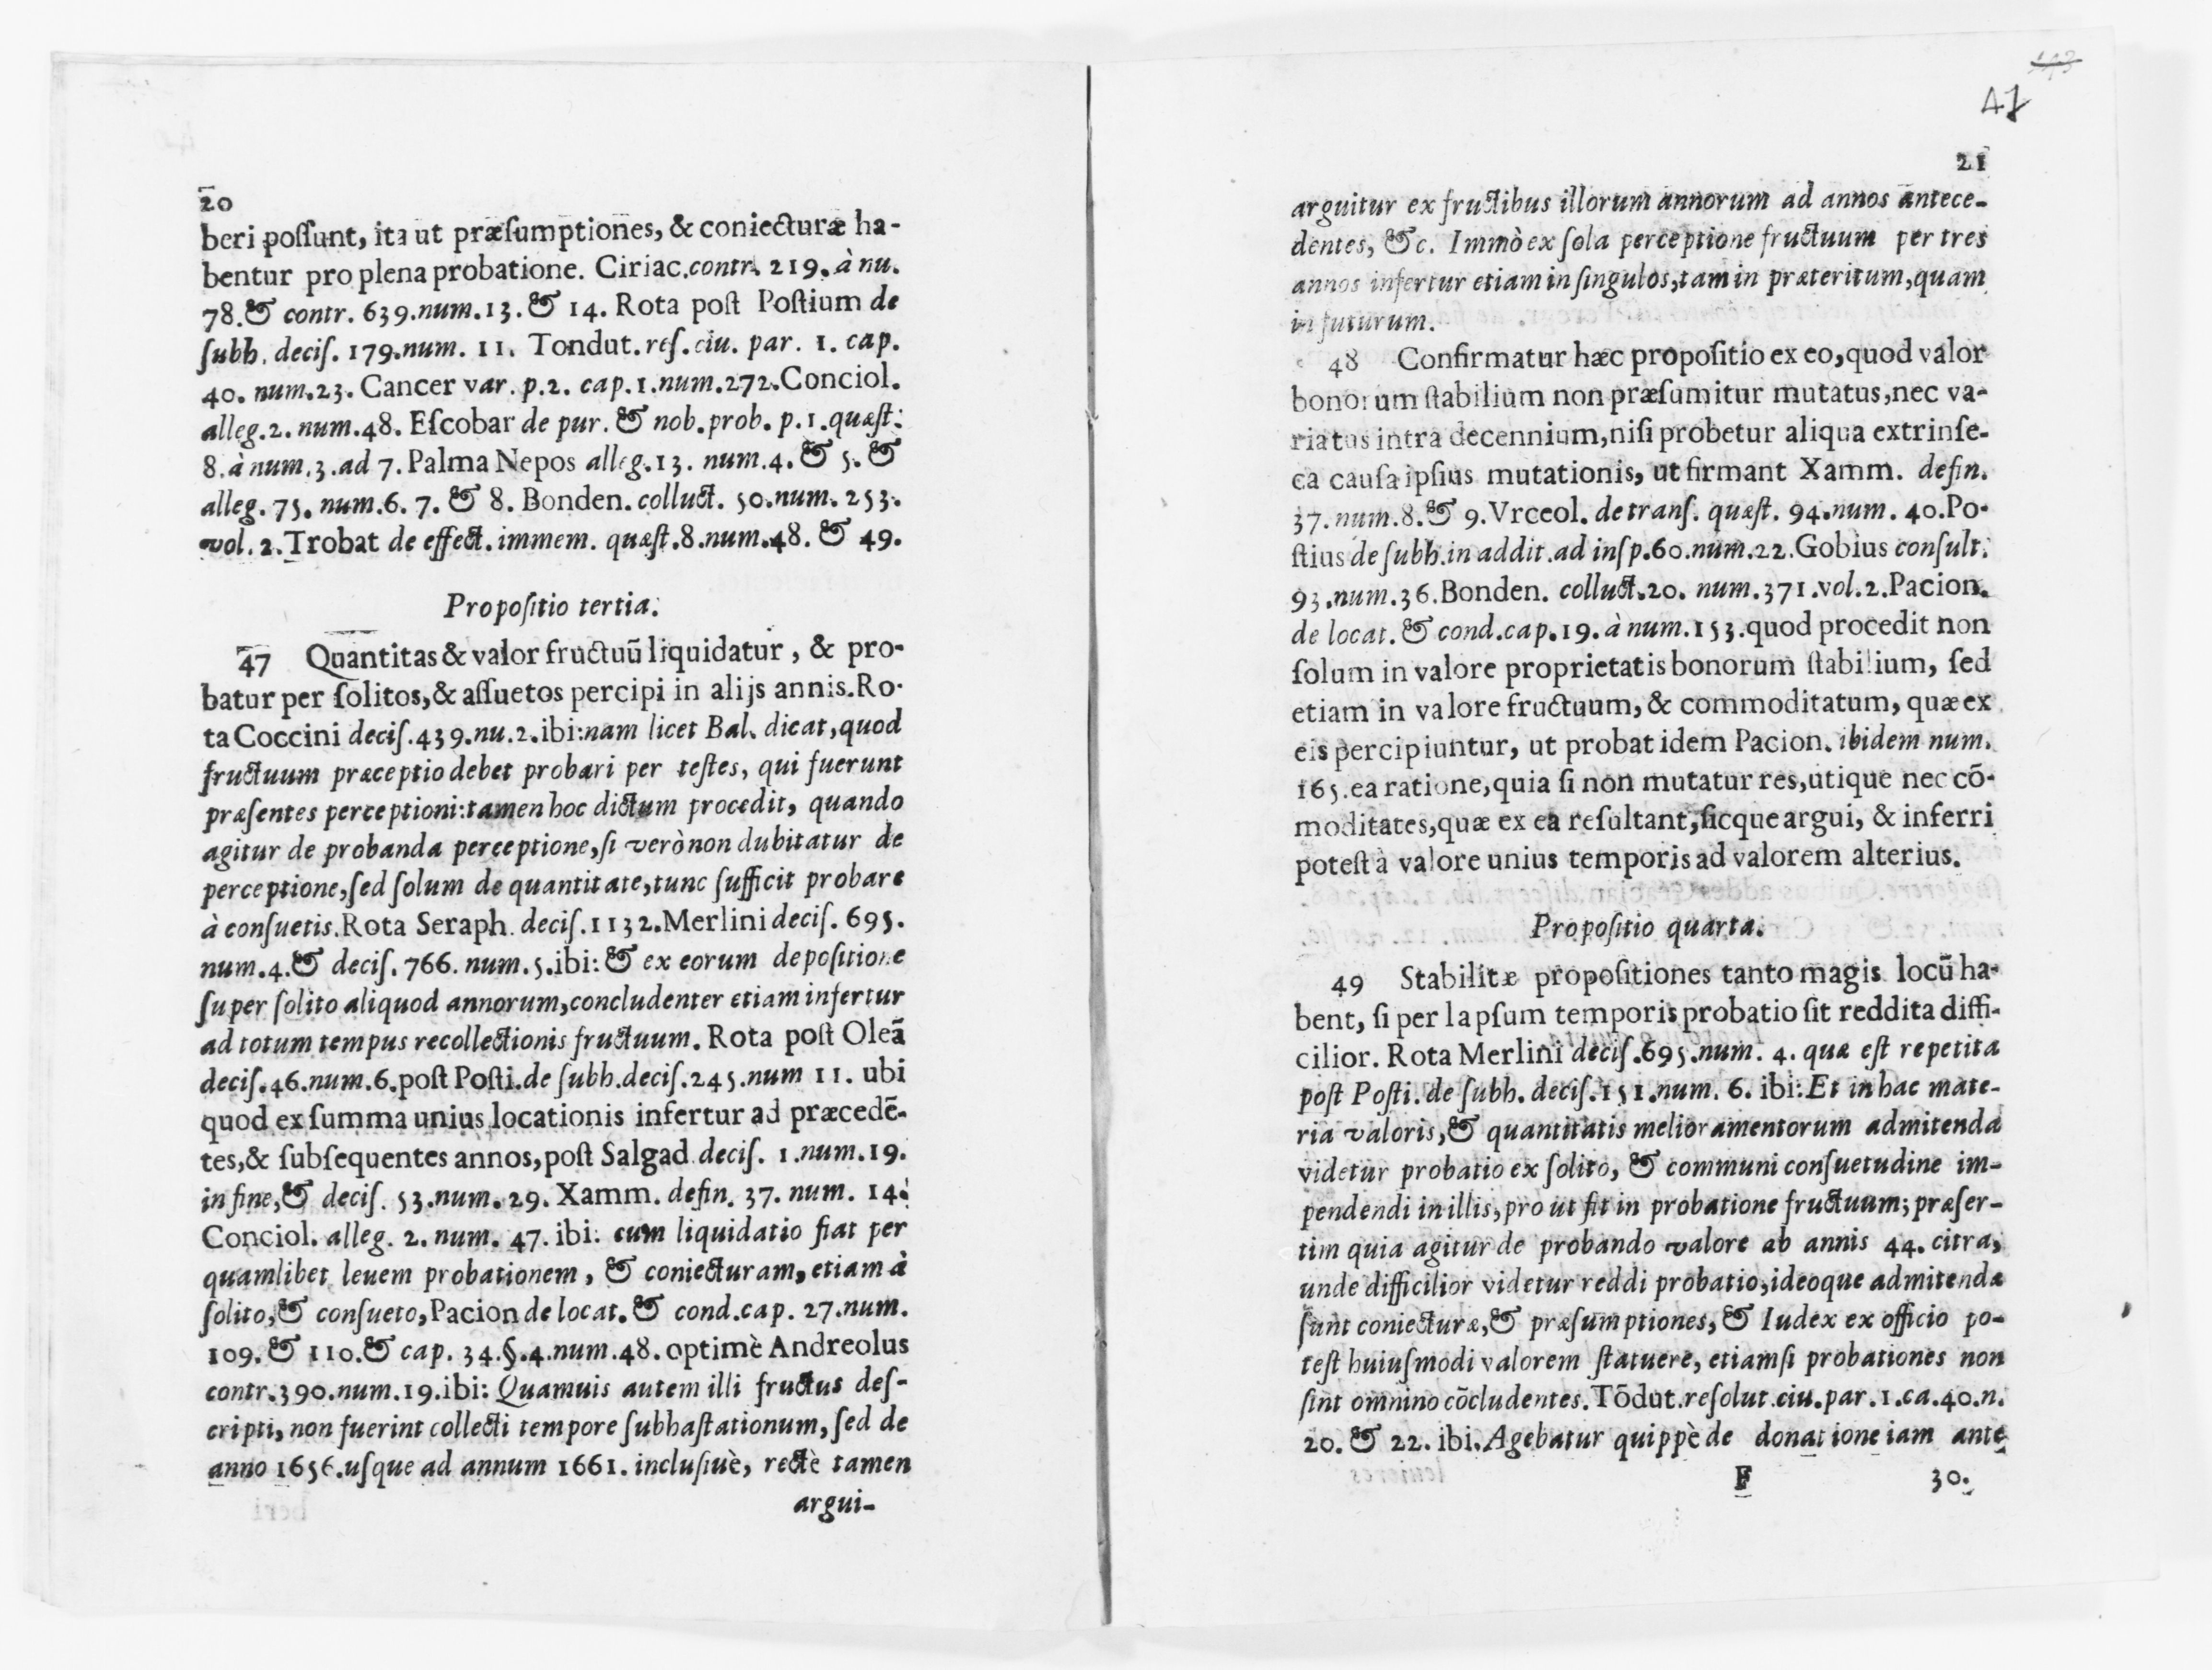 20
beri poſſunt, ita ut præſumptiones, & coniecturæ ha-
bentur pro plena probatione. Ciriac. contr. 219. à nu.
78. & contr. 639. num. 13. & 14. Rota poſt Poſtium de
ſubh. deciſ. 179. num. 11. Tondut. reſ. ciu. par. 1. cap.
40. num. 23. Cancer var. p. 2. cap. 1. num. 272. Conciol.
alleg. 2. num. 48. Eſcobar de pur. & nob. prob. p. 1. quæſt.
8. à num. 3. ad 7. Palma Nepos alleg. 13. num. 4. & 5. &
alleg. 75. num. 6. 7. & 8. Bonden. colluct. 50. num. 253.
vol. 2. Trobat de effect. immem. quæſt. 8. num. 48. & 49.
Propoſitio tertia.
47 Quantitas & valor fructuũ liquidatur, & pro-
batur per ſolitos, & aſſuetos percipi in alijs annis. Ro-
ta Coccini deciſ. 439. nu. 2. ibi: nam licet Bal. dicat, quod
fructuum præceptio debet probari per teſtes, qui fuerunt
præſentes perceptioni: tamen hoc dictum procedit, quando
agitur de probanda perceptione, ſi verò non dubitatur de
perceptione, ſed ſolum de quantitate, tunc ſufficit probare
à conſuetis. Rota Seraph. deciſ. 1132. Merlini deciſ. 695.
num. 4. & deciſ. 766. num. 5. ibi: & ex eorum depoſitione
ſuper ſolito aliquod annorum, concludenter etiam infertur
ad totum tempus recollectionis fructuum. Rota poſt Oleã
deciſ. 46. num. 6. poſt Poſti. de ſubh. deciſ. 245. num 11. ubi
quod ex ſumma unius locationis infertur ad præcedẽ-
tes, & ſubſequentes annos, poſt Salgad. deciſ. 1. num. 19.
in fine, & deciſ. 53. num. 29. Xamm. defin. 37. num. 14.
Conciol. alleg. 2. num. 47. ibi: cum liquidatio fiat per
quamlibet leuem probationem, & coniecturam, etiam à
ſolito, & conſueto, Pacion de locat. & cond. cap. 27. num.
109. & 110. & cap. 34. §. 4. num. 48. optimè Andreolus
contr. 390. num. 19. ibi: Quamuis autem illi fructus deſ-
cripti, non fuerint collecti tempore ſubhaſtationum, ſed de
anno 1656. uſque ad annum 1661. incluſiuè, rectè tamen
argui-
47
21
arguitur ex fructibus illorum annorum ad annos antece-
dentes, &c. Immò ex ſola perceptione fructuum per tres
annos infertur etiam in ſingulos, tam in præteritum, quam
in futurum.
48 Confirmatur hæc propoſitio ex eo, quod valor
bonorum ſtabilium non præſumitur mutatus, nec va-
riatus intra decennium, niſi probetur aliqua extrinſe-
ca cauſa ipſius mutationis, ut firmant Xamm. defin.
37. num. 8. & 9. Vrceol. de tranſ. quæſt. 94. num. 40. Po-
ſtius de ſubh. in addit. ad inſp. 60. num. 22. Gobius conſult.
93. num. 36. Bonden. colluct. 20. num. 371. vol. 2. Pacion.
de locat. & cond. cap. 19. à num. 153. quod procedit non
ſolum in valore proprietatis bonorum ſtabilium, ſed
etiam in valore fructuum, & commoditatum, quæ ex
eis percipiuntur, ut probat idem Pacion. ibidem num.
165. ea ratione, quia ſi non mutatur res, utique nec cõ-
moditates, quæ ex ea reſultant, ſicque argui, & inferri
poteſt à valore unius temporis ad valorem alterius.
Propoſitio quarta.
49 Stabilitæ propoſitiones tanto magis locũ ha-
bent, ſi per lapſum temporis probatio ſit reddita diffi-
cilior. Rota Merlini deciſ. 695. num. 4. quæ eſt repetita
poſt Poſti. de ſubh. deciſ. 151. num. 6. ibi: Et in hac mate-
ria valoris, & quantitatis melioramentorum admitenda
videtur probatio ex ſolito, & communi conſuetudine im-
pendendi in illis, pro ut fit in probatione fructuum; præſer-
tim quia agitur de probando valore ab annis 44. citra,
unde difficilior videtur reddi probatio, ideoque admitendæ
ſunt coniecturæ, & præſumptiones, & Iudex ex officio po-
teſt huiuſmodi valorem ſtatuere, etiamſi probationes non
ſint omnino cõcludentes. Tõdut. reſolut. ciu. par. 1. ca. 40. n.
20. & 22. ibi. Agebatur quippè de donatione iam ante
F 30.